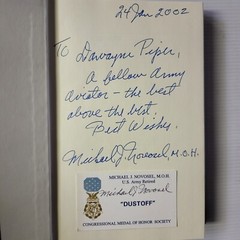 24 Jan 2002
To Dawayne Piper,
A fellow Army
aviator - the best
above the best.
Best Wishes.
Michael J. Novosel, M.O.H.
MICHAEL J. NOVOSEL, M.O.H.
U.S. Army Retired
Michael J. Novosel
"DUSTOFF"
CONGRESSIONAL MEDAL OF HONOR SOCIETY